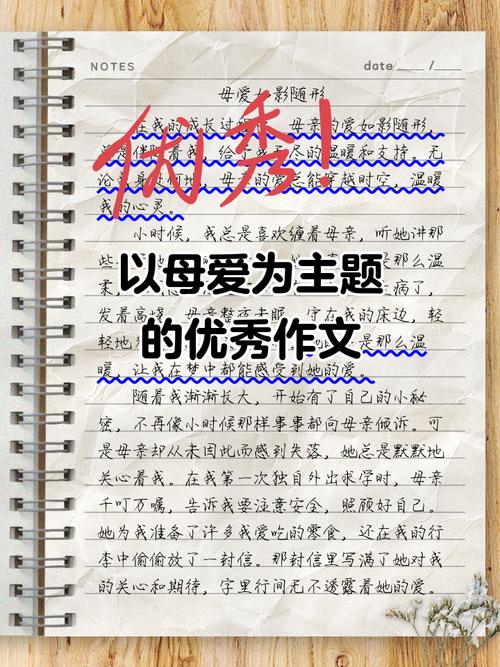 NOTES
date ____ / ___
母爱如影随形
优秀!
在我的成长过 母亲的爱如影随形，
总是伴随着我，给了我无尽的温暖和支持。无
论 身处何地，母亲的爱总能穿越时空，温暖
我的心灵。
小时候，我总是喜欢缠着母亲，听她讲那
些 是那么温
柔， 病了，
以母爱为主题
发着高烧，母亲整夜未眠，守在我的床边，轻
轻地 是那么温
的优秀作文
暖，让我在梦中都能感受到她的爱。
随着我渐渐长大，开始有了自己的小秘
密，不再像小时候那样事事都向母亲倾诉。可
是母亲却从未因此而感到失落，她总是默默地
关心着我。在我第一次独自外出求学时，母亲
千叮万嘱，告诉我要注意安全，照顾好自己。
她为我准备了许多我爱吃的零食，还在我的行
李中偷偷放了一封信。那封信里写满了她对我
的关心和期待，字里行间无不透露着她的爱。